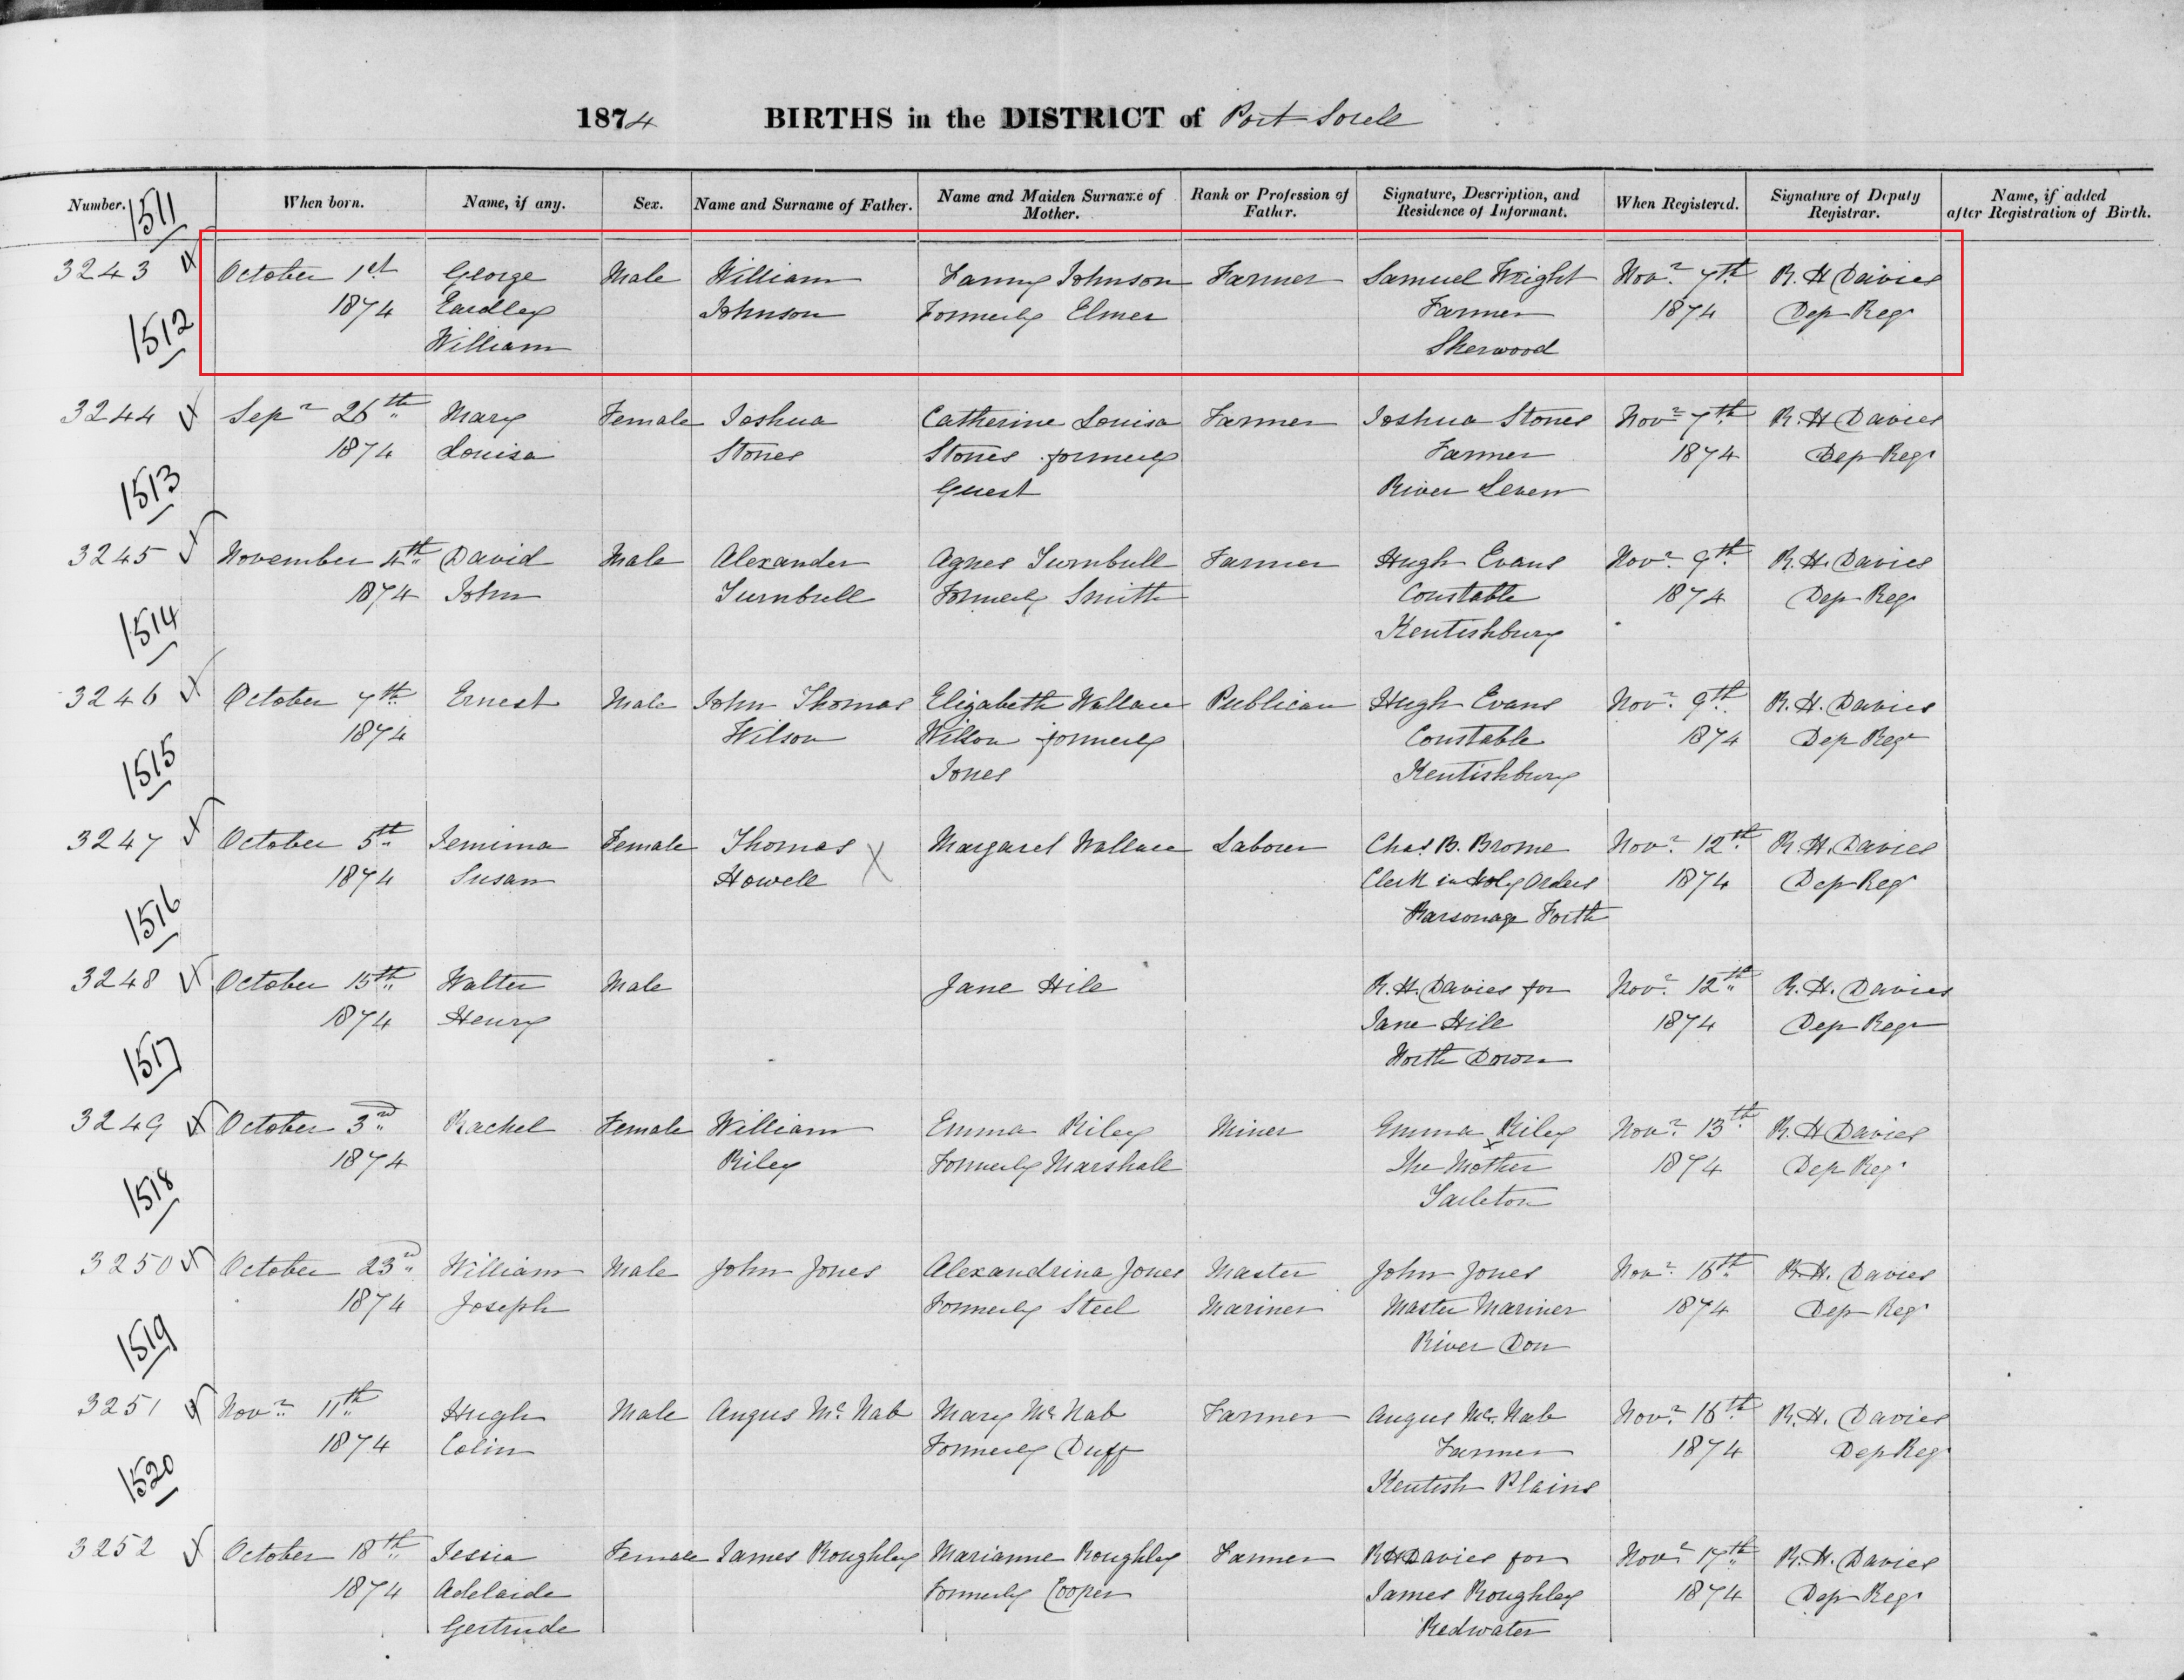 1874 BIRTHS in the DISTRICT of Port Sorell
Number. When born. Name, if any. Sex. Name and Surname of Father. Name and Maiden Surname of Mother. Rank or Profession of Father. Signature, Description, and Residence of Informant. When Registered. Signature of Deputy Registrar. Name, if added after Registration of Birth.
1511
3243 October 1st George Male William Fanny Johnson Farmer Samuel Wright Novr. 7th R. H Davies
1874 Eardley Johnson Formerly Elmer Farmer 1874 Dep Regr
William Sherwood
1512
3244 Sepr 26th Mary Female Joshua Catherine Louisa Farmer Joshua Stones Novr 7th R. H Davies
1874 Louisa Stones Stones formerly Farmer 1874 Dep Regr
Guest River Leven
1513
3245 November 4th David Male Alexander Agnes Turnbull Farmer Hugh Evans Novr. 9th R. H. Davies
1874 John Turnbull Formerly Smith Constable 1874 Dep Regr
Kentishbury
1514
3246 October 7th Ernest Male John Thomas Elizabeth Wallace Publican Hugh Evans Novr. 9th R. H. Davies
1874 Wilson Wilson formerly Constable 1874 Dep Regr
Jones Kentishbury
1515
3247 October 5th Jemima Female Thomas X Margaret Wallace Labourer Chas. B. Brome Novr. 12th R. H. Davies
1874 Susan Howell Clerk in Holy Orders 1874 Dep Regr
Parsonage Forth
1516
3248 October 15th Walter Male Jane Hill R. H. Davies for Novr. 12th R. H. Davies
1874 Henry Jane Hill 1874 Dep Regr
North Down
1517
3249 October 3rd Rachel Female William Emma Riley Miner Emma Riley Novr. 13th R. H Davies
1874 Riley Formerly Marshall The x Mother 1874 Dep Regr
Tarleton
1518
3250 October 23rd William Male John Jones Alexandrina Jones Master John Jones Novr. 16th R. H. Davies
1874 Joseph Formerly Steel Mariner Master Mariner 1874 Dep Regr
River Don
1519
3251 Novr. 11th Hugh Male Angus Mc Nab Mary Mc Nab Farmer Angus Mc. Nab Novr. 16th R. H. Davies
1874 Colin Formerly Duff Farmer 1874 Dep Regr
Kentish Plains
1520
3252 October 18th Jessie Female James Roughley Marianne Roughley Farmer R H Davies for Novr 17th R. H. Davies
1874 Adelaide Formerly Cooper James Roughley 1874 Dep Regr
Gertrude Redwater